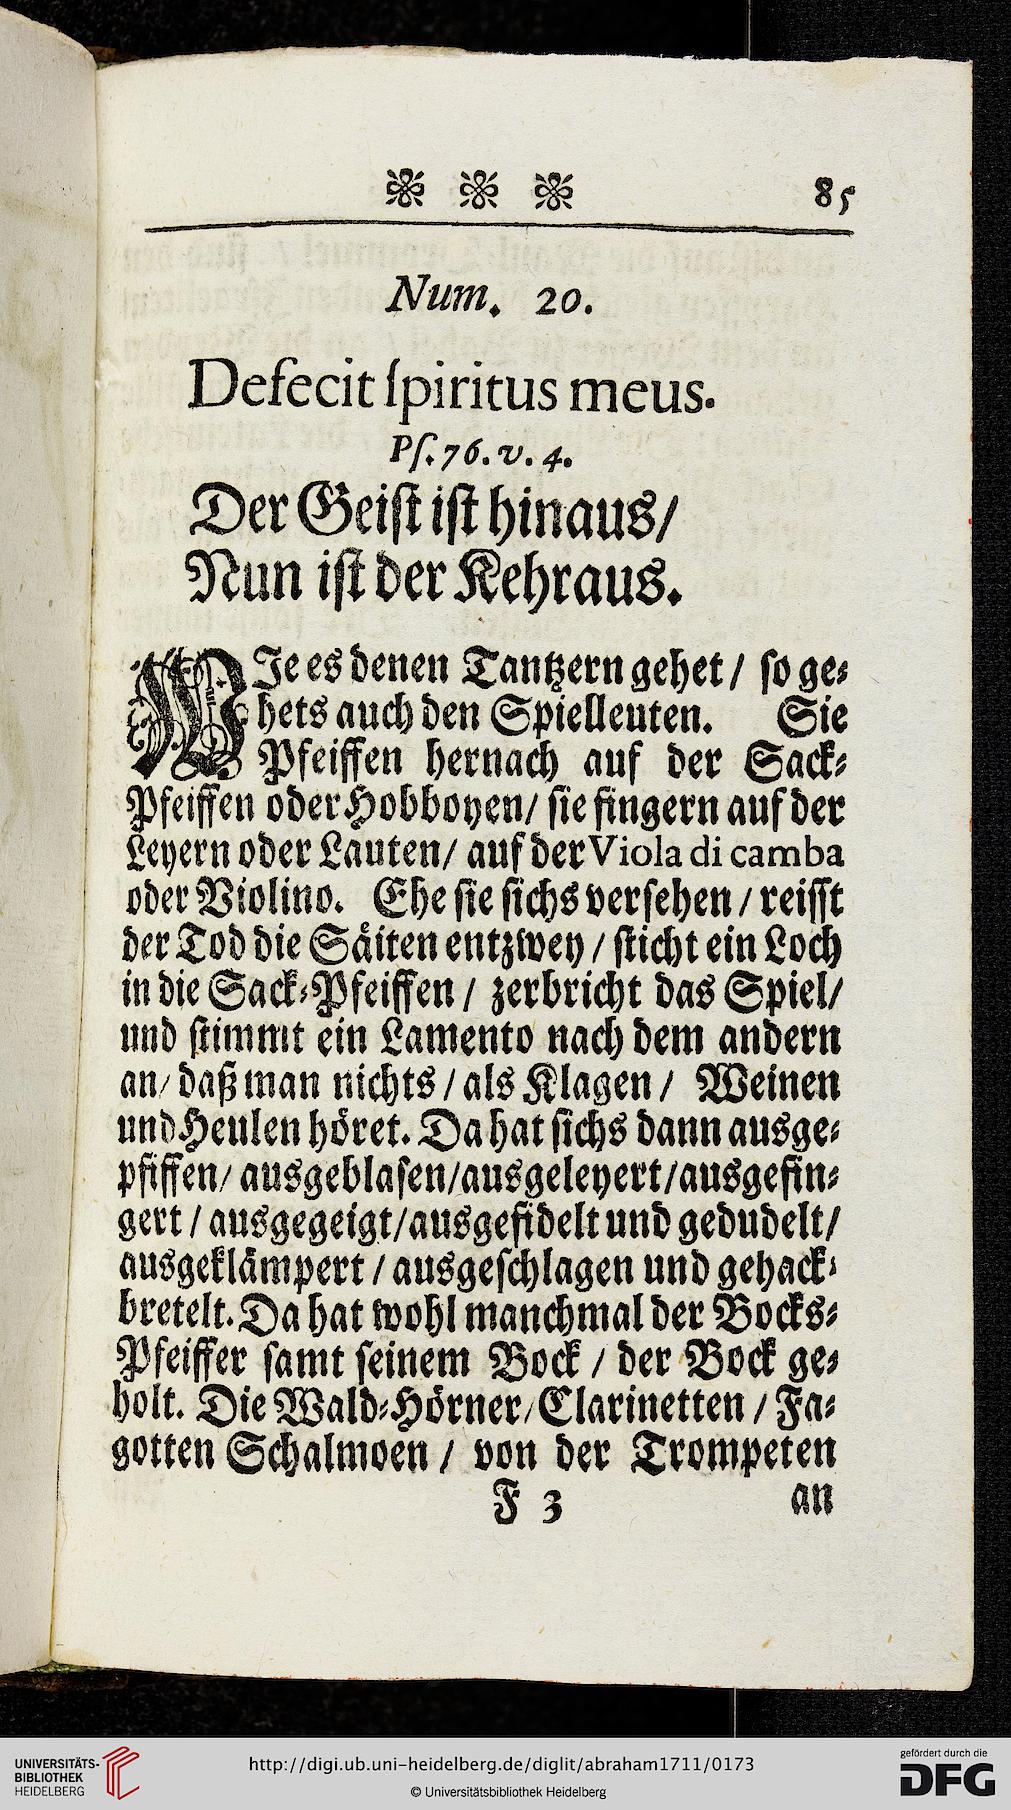 ❊ ❊ ❊ 85
Num. 20.
Defecit ſpiritus meus.
Pſ. 76. v. 4.
Der Geiſt iſt hinaus/
Nun iſt der Kehraus.
WIe es denen Tantzern gehet / ſo ge⸗
hets auch den Spielleuten. Sie
Pfeiffen hernach auf der Sack⸗
Pfeiffen oder Hobboyen/ ſie fingern auf der
Leyern oder Lauten/ auf der Viola di camba
oder Violino. Ehe ſie ſichs verſehen / reiſſt
der Tod die Säiten entzwey / ſticht ein Loch
in die Sack⸗Pfeiffen / zerbricht das Spiel/
und ſtimmt ein Lamento nach dem andern
an/ daß man nichts / als Klagen / Weinen
und Heulen höret. Da hat ſichs dann ausge⸗
pfiffen/ ausgeblaſen/ausgeleyert/ausgefin⸗
gert / ausgegeigt/ausgefidelt und gedudelt/
ausgeklämpert / ausgeſchlagen und gehack⸗
bretelt. Da hat wohl manchmal der Bocks⸗
Pfeiffer ſamt ſeinem Bock / der Bock ge⸗
holt. Die Wald⸗Hörner/Clarinetten / Fa⸗
gotten Schalmoen / von der Trompeten
F 3 an
UNIVERSITÄTS-
BIBLIOTHEK
HEIDELBERG
http://digi.ub.uni-heidelberg.de/diglit/abraham1711/0173
© Universitätsbibliothek Heidelberg
gefördert durch die
DFG